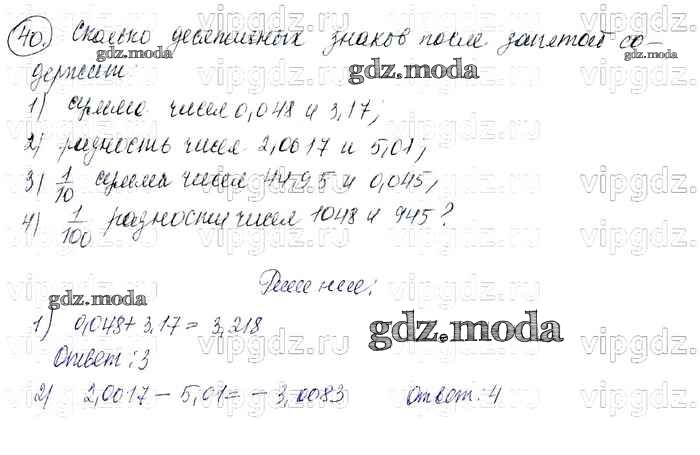 40. Сколько десятичных знаков после запятой со-
держит:
1) сумма чисел 0,048 и 3,17;
2) разность чисел 2,0017 и 5,01;
3) 1/10 суммы чисел 44,95 и 0,045;
4) 1/100 разности чисел 1048 и 945?
Решение:
1) 0,048 + 3,17 = 3,218
Ответ: 3
2) 2,0017 - 5,01 = - 3,0083 Ответ: 4
gdz.moda
gdz.moda
gdz.moda
gdz.moda
vipgdz.ru